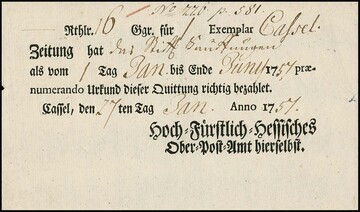 No 220 p. 581.
Rthlr. 16 Ggr. für Exemplar Cassel.
Zeitung hat das Stift
als vom 1 Tag Jan. bis Ende Juny 1757 præ-
numerando Urkund dieser Quittung richtig bezahlet.
Cassel, den 27ten Tag Jan. Anno 1757.
Hoch-Fürstlich-Hessisches
Ober-Post-Amt hierselbst.